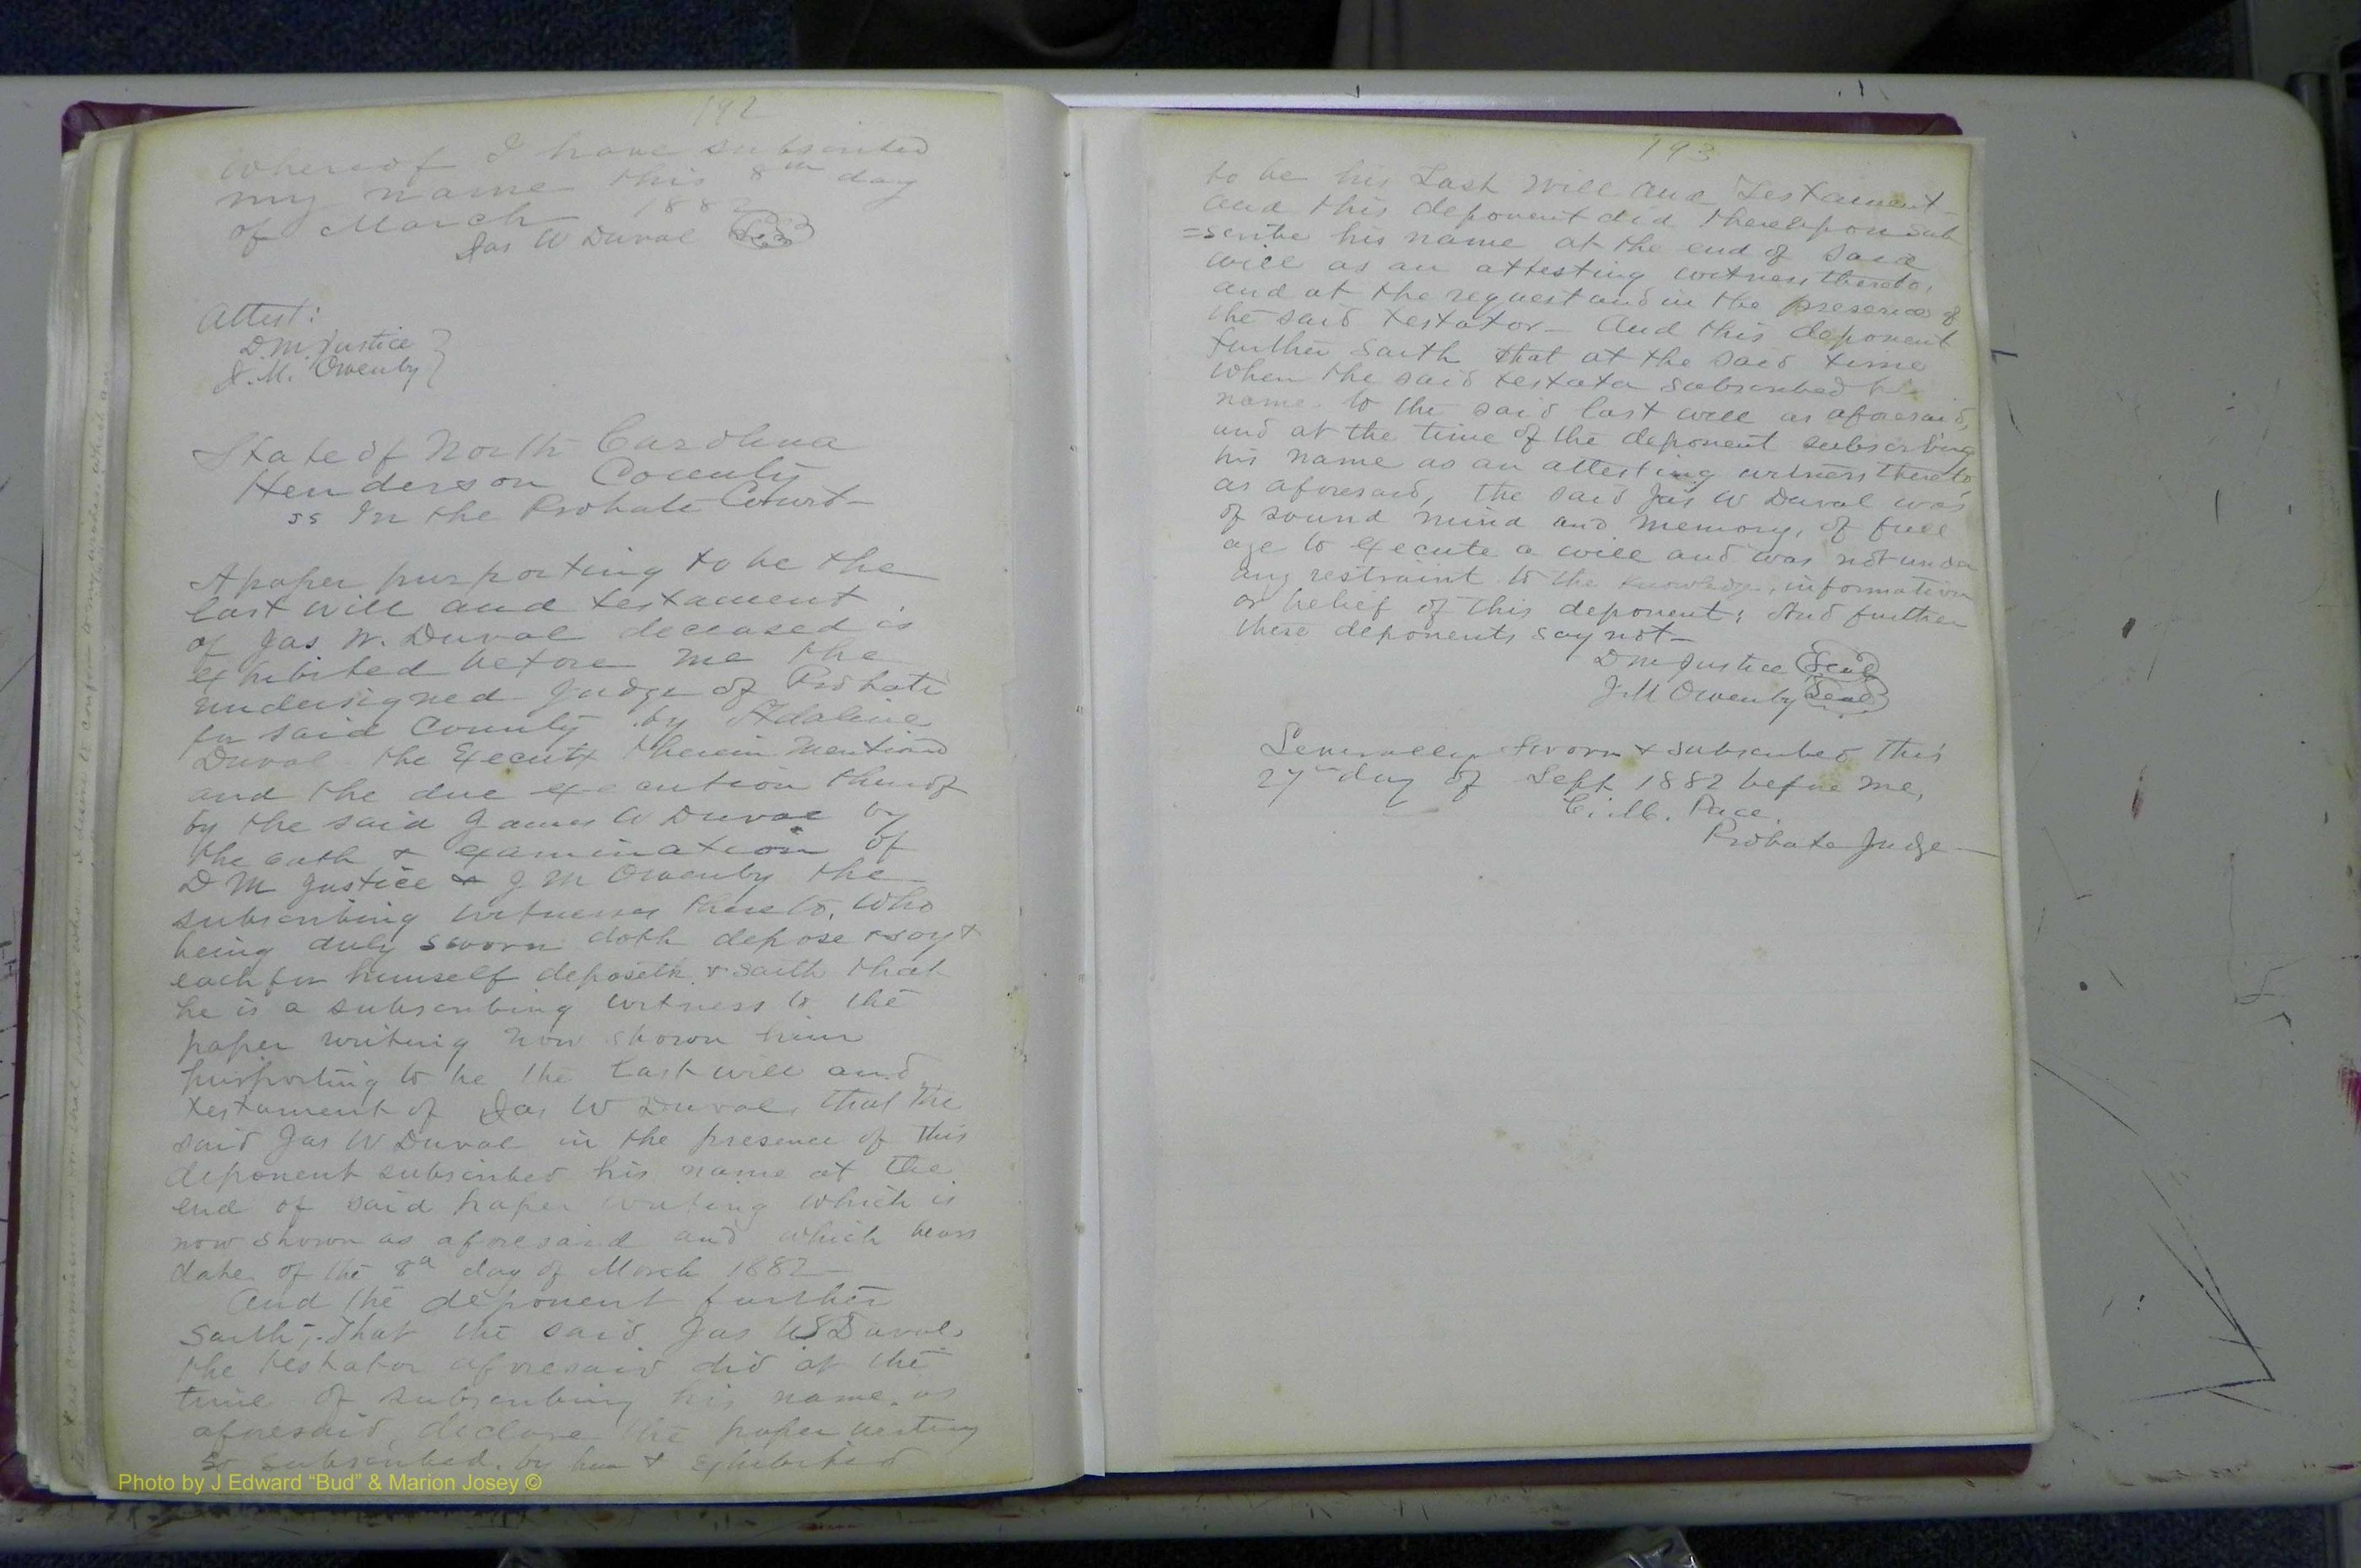 192
whereof I have subscribed
my name this 8th day
of March 1882
Jas W Duval
Attest:
D. M. Justice
J. M. Owenby
State of North Carolina
Henderson County
ss In the Probate Court
A paper purporting to be the
last will and testament
of Jas W. Duval deceased is
exhibited before me the
undersigned Judge of Probate
for said County by Adaline
Duval the Executx therein mentioned
and the due execution thereof
by the said James W Duval by
the oath & examination of
D M Justice & J M Owenby the
subscribing witnesses thereto, who
being duly sworn doth depose & say &
each for himself deposeth & saith that
he is a subscribing witness to the
paper writing now shown him
purporting to be the last will and
testament of Jas W Duval, that the
said Jas W Duval in the presence of this
deponent subscribed his name at the
end of said paper writing which is
now shown as aforesaid and which bears
date of the 8th day of March 1882
And the deponent further
Saith, That the said Jas W Duval,
the testator aforesaid did at the
time of subscribing his name as
aforesaid, declare the paper writing
so subscribed by him & exhibited
Photo by J Edward “Bud” & Marion Josey ©
193
to be his Last Will and Testament
and this deponent did thereupon sub
=scribe his name at the end of said
will as an attesting witness thereto,
and at the request and in the presence of
the said testator – And this deponent
further saith that at the said time
when the said testator subscribed his
name to the said last will as aforesaid,
and at the time of the deponent subscribing
his name as an attesting witness thereto
as aforesaid, the said Jas W Duval was
of sound mind and memory, of full
age to execute a will and was not under
any restraint to the knowledge, information
or belief of this deponent; And further
these deponents say not –
D M Justice Seal
J. M Owenby Seal
Severally sworn & subscribed this
27th day of Sept 1882 before me,
C. M. Pace,
Probate Judge